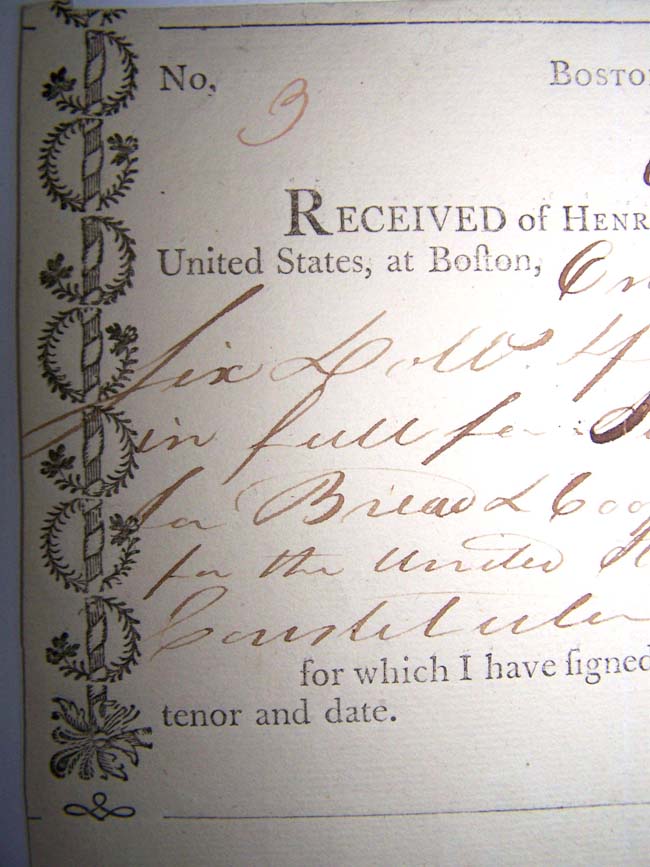 No. 3 BOSTO
RECEIVED of HENR
United States, at Boſton,
Six Dolls.
in full for
for Bread &
for the United
Constitution
for which I have ſigned
tenor and date.